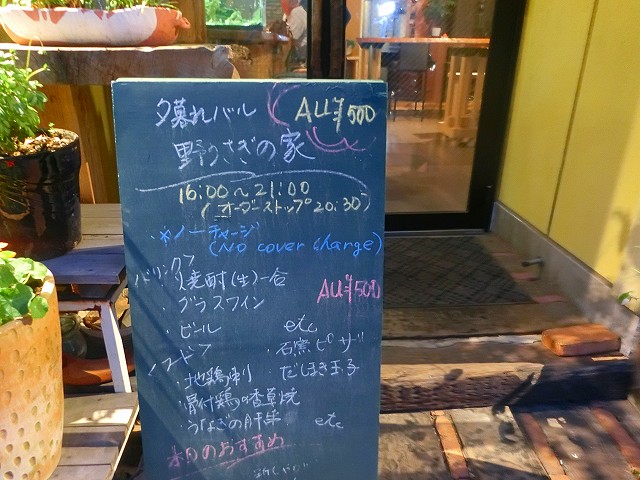 夕暮れバル ALL¥500
野うさぎの家
16:00～21:00
(オーダーストップ20:30)
*ノーチャージ
(No cover charge)
ドリンク ALL¥500
・焼酎(生)一合
・グラスワイン
・ビール etc
フード
・地鶏刺
・骨付鶏の香草焼
・うなぎの肝串
・石窯ピザ
・だしまき玉子
etc
本日のおすすめ